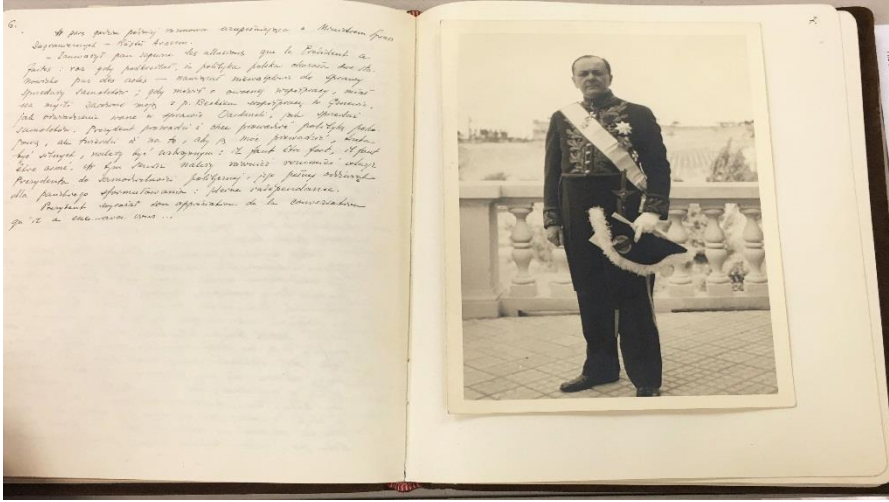 6.
W parę godzin później rozmowa uzupełniająca z Ministrem Spraw
Zagranicznych – Rüştü Arasem.
– Zauważył pan zapewne les allusions que le Président a
faites: raz gdy podkreślał, iż polityka polska
par des actes – nawiązał niewątpliwie do sprawy
sprzedaży samolotów; gdy mówił o owocnej współpracy, miał
na myśli zarówno moją z p. Beckiem współpracę w Genewie,
jak w sprawie jak sprzedaż
samolotów. Prezydent prowadzi i chce prowadzić politykę
ale twierdzi iż na to, aby ją móc prowadzić, trzeba
być silnym, należy być uzbrojonym: il faut être fort, il faut
être armé. W tym sensie należy również rozumieć
Prezydenta do samodzielności politycznej i jego
dla pańskiego sformułowania: pleine indépendance.
Prezydent wyraził son appréciation de la conversation
qu'il a eue avec vous ...
7.